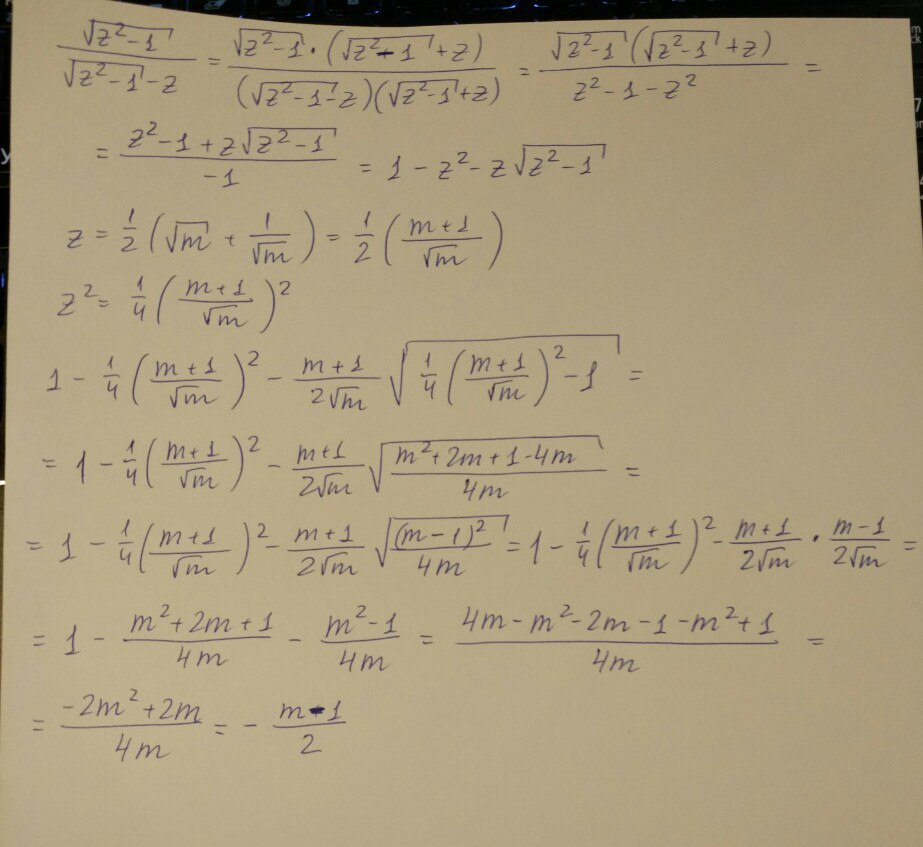 √(z²-1) / (√(z²-1) - z) = √(z²-1) · (√(z²-1) + z) / ((√(z²-1) - z)(√(z²-1) + z)) = √(z²-1) (√(z²-1) + z) / (z² - 1 - z²) =
= (z² - 1 + z√(z²-1)) / -1 = 1 - z² - z√(z²-1)
z = 1/2 (√m + 1/√m) = 1/2 ((m+1)/√m)
z² = 1/4 ((m+1)/√m)²
1 - 1/4 ((m+1)/√m)² - (m+1)/(2√m) √(1/4 ((m+1)/√m)² - 1) =
= 1 - 1/4 ((m+1)/√m)² - (m+1)/(2√m) √((m²+2m+1-4m)/(4m)) =
= 1 - 1/4 ((m+1)/√m)² - (m+1)/(2√m) √((m-1)²/(4m)) = 1 - 1/4 ((m+1)/√m)² - (m+1)/(2√m) · (m-1)/(2√m) =
= 1 - (m²+2m+1)/(4m) - (m²-1)/(4m) = (4m - m² - 2m - 1 - m² + 1)/(4m) =
= (-2m² + 2m)/(4m) = - (m-1)/2